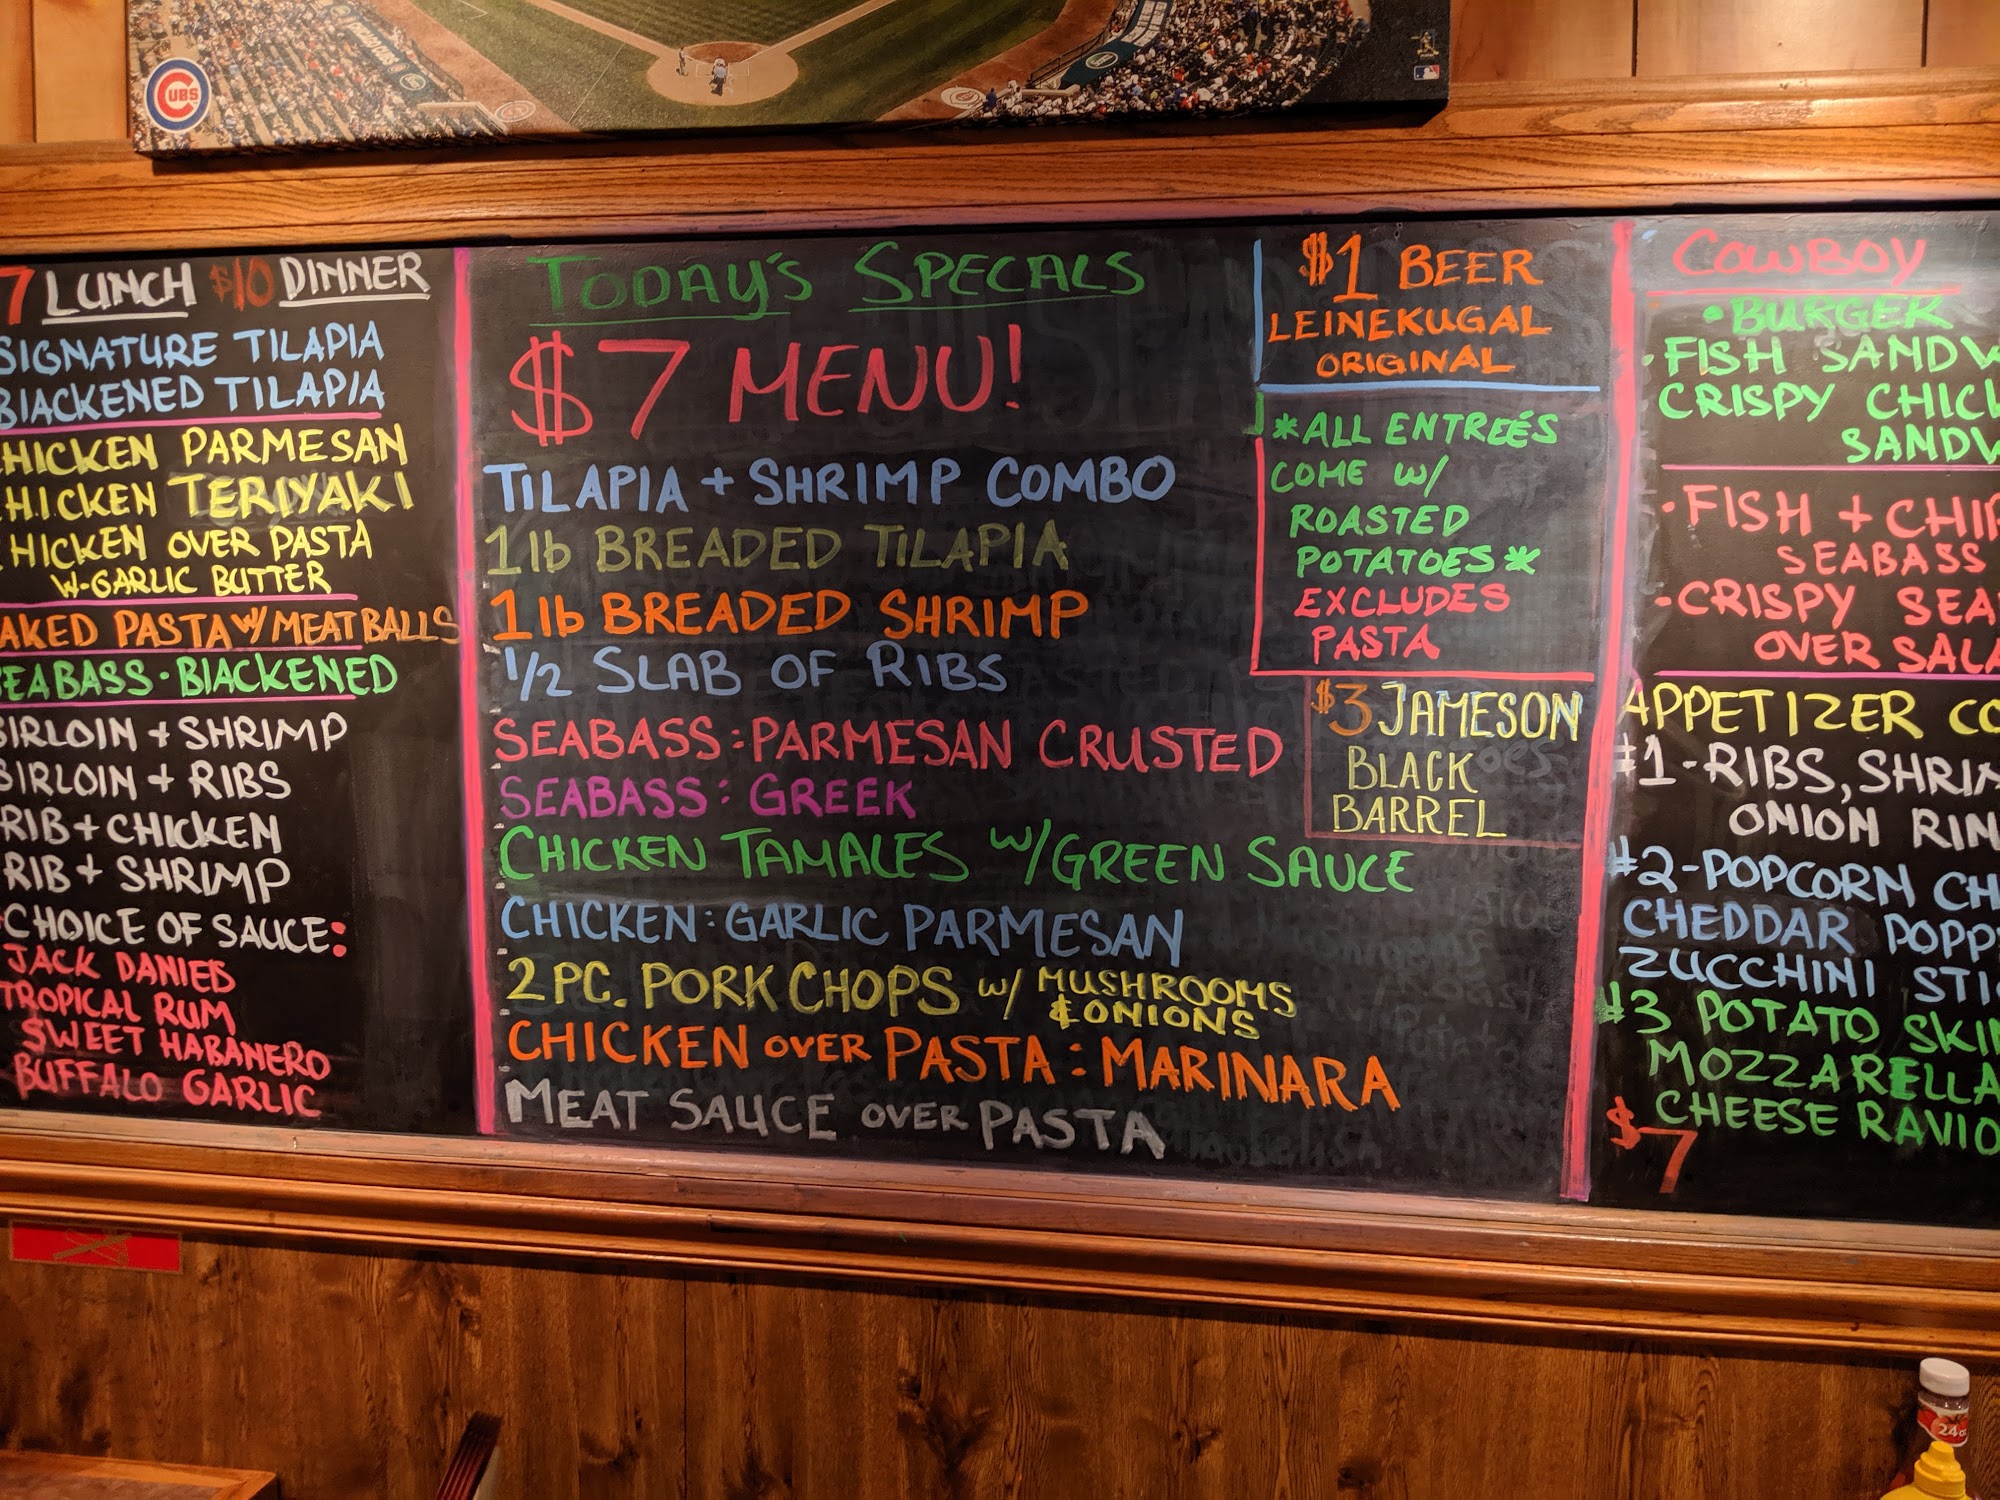 CUBS
7 LUNCH $10 DINNER
SIGNATURE TILAPIA
BLACKENED TILAPIA
CHICKEN PARMESAN
CHICKEN TERIYAKI
CHICKEN OVER PASTA
W-GARLIC BUTTER
AKED PASTA W/ MEATBALLS
SEABASS • BLACKENED
SIRLOIN + SHRIMP
SIRLOIN + RIBS
RIB + CHICKEN
RIB + SHRIMP
CHOICE OF SAUCE:
JACK DANIELS
TROPICAL RUM
SWEET HABANERO
BUFFALO GARLIC
TODAY'S SPECALS
$7 MENU!
TILAPIA + SHRIMP COMBO
1 lb BREADED TILAPIA
1 lb BREADED SHRIMP
1/2 SLAB OF RIBS
SEABASS: PARMESAN CRUSTED
SEABASS: GREEK
CHICKEN TAMALES W/GREEN SAUCE
CHICKEN: GARLIC PARMESAN
2 PC. PORK CHOPS W/ MUSHROOMS
& ONIONS
CHICKEN OVER PASTA: MARINARA
MEAT SAUCE OVER PASTA
$1 BEER
LEINEKUGAL
ORIGINAL
*ALL ENTREÉS
COME W/
ROASTED
POTATOES*
EXCLUDES
PASTA
$3 JAMESON
BLACK
BARREL
COWBOY
• BURGER
• FISH SANDW
CRISPY CHICK
SANDW
• FISH + CHIP
SEABASS
- CRISPY SEA
OVER SALA
APPETIZER CO
#1 - RIBS, SHRIM
ONION RIN
#2 - POPCORN CH
CHEDDAR POPP
ZUCCHINI STI
#3 POTATO SKIN
MOZZARELLA
CHEESE RAVIO
$7
24oz